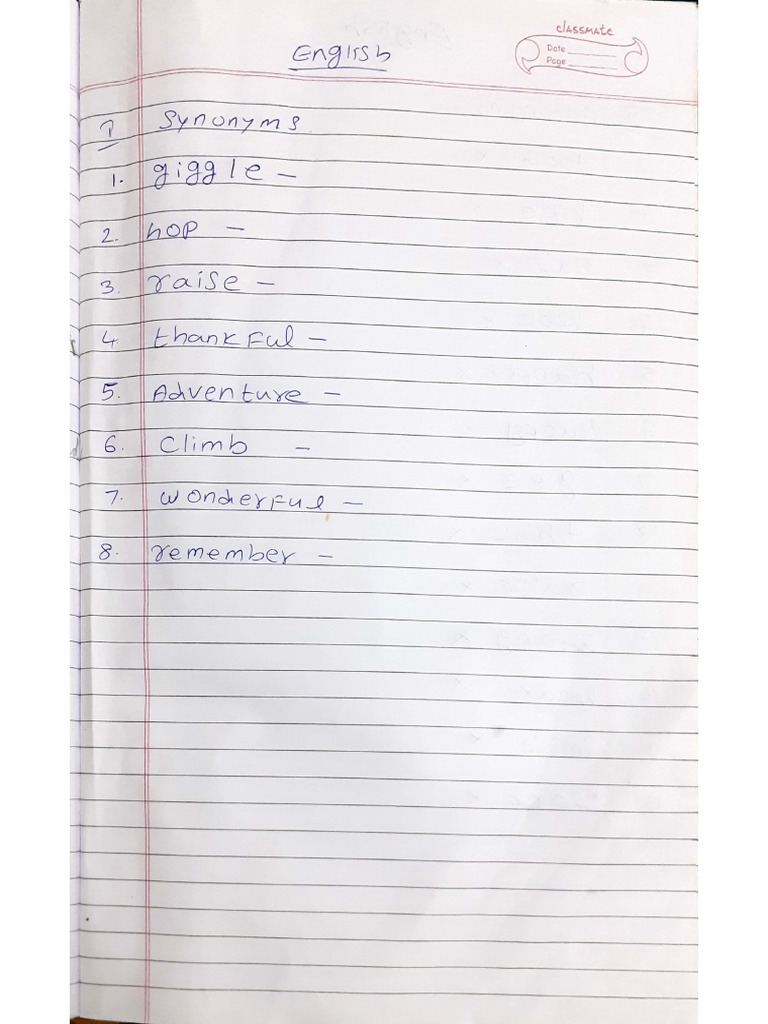 classmate
Date
Page
English
I Synonyms
1. giggle -
2. hop -
3. raise -
4 thankful -
5. Adventure -
6. Climb -
7. wonderful -
8. remember -